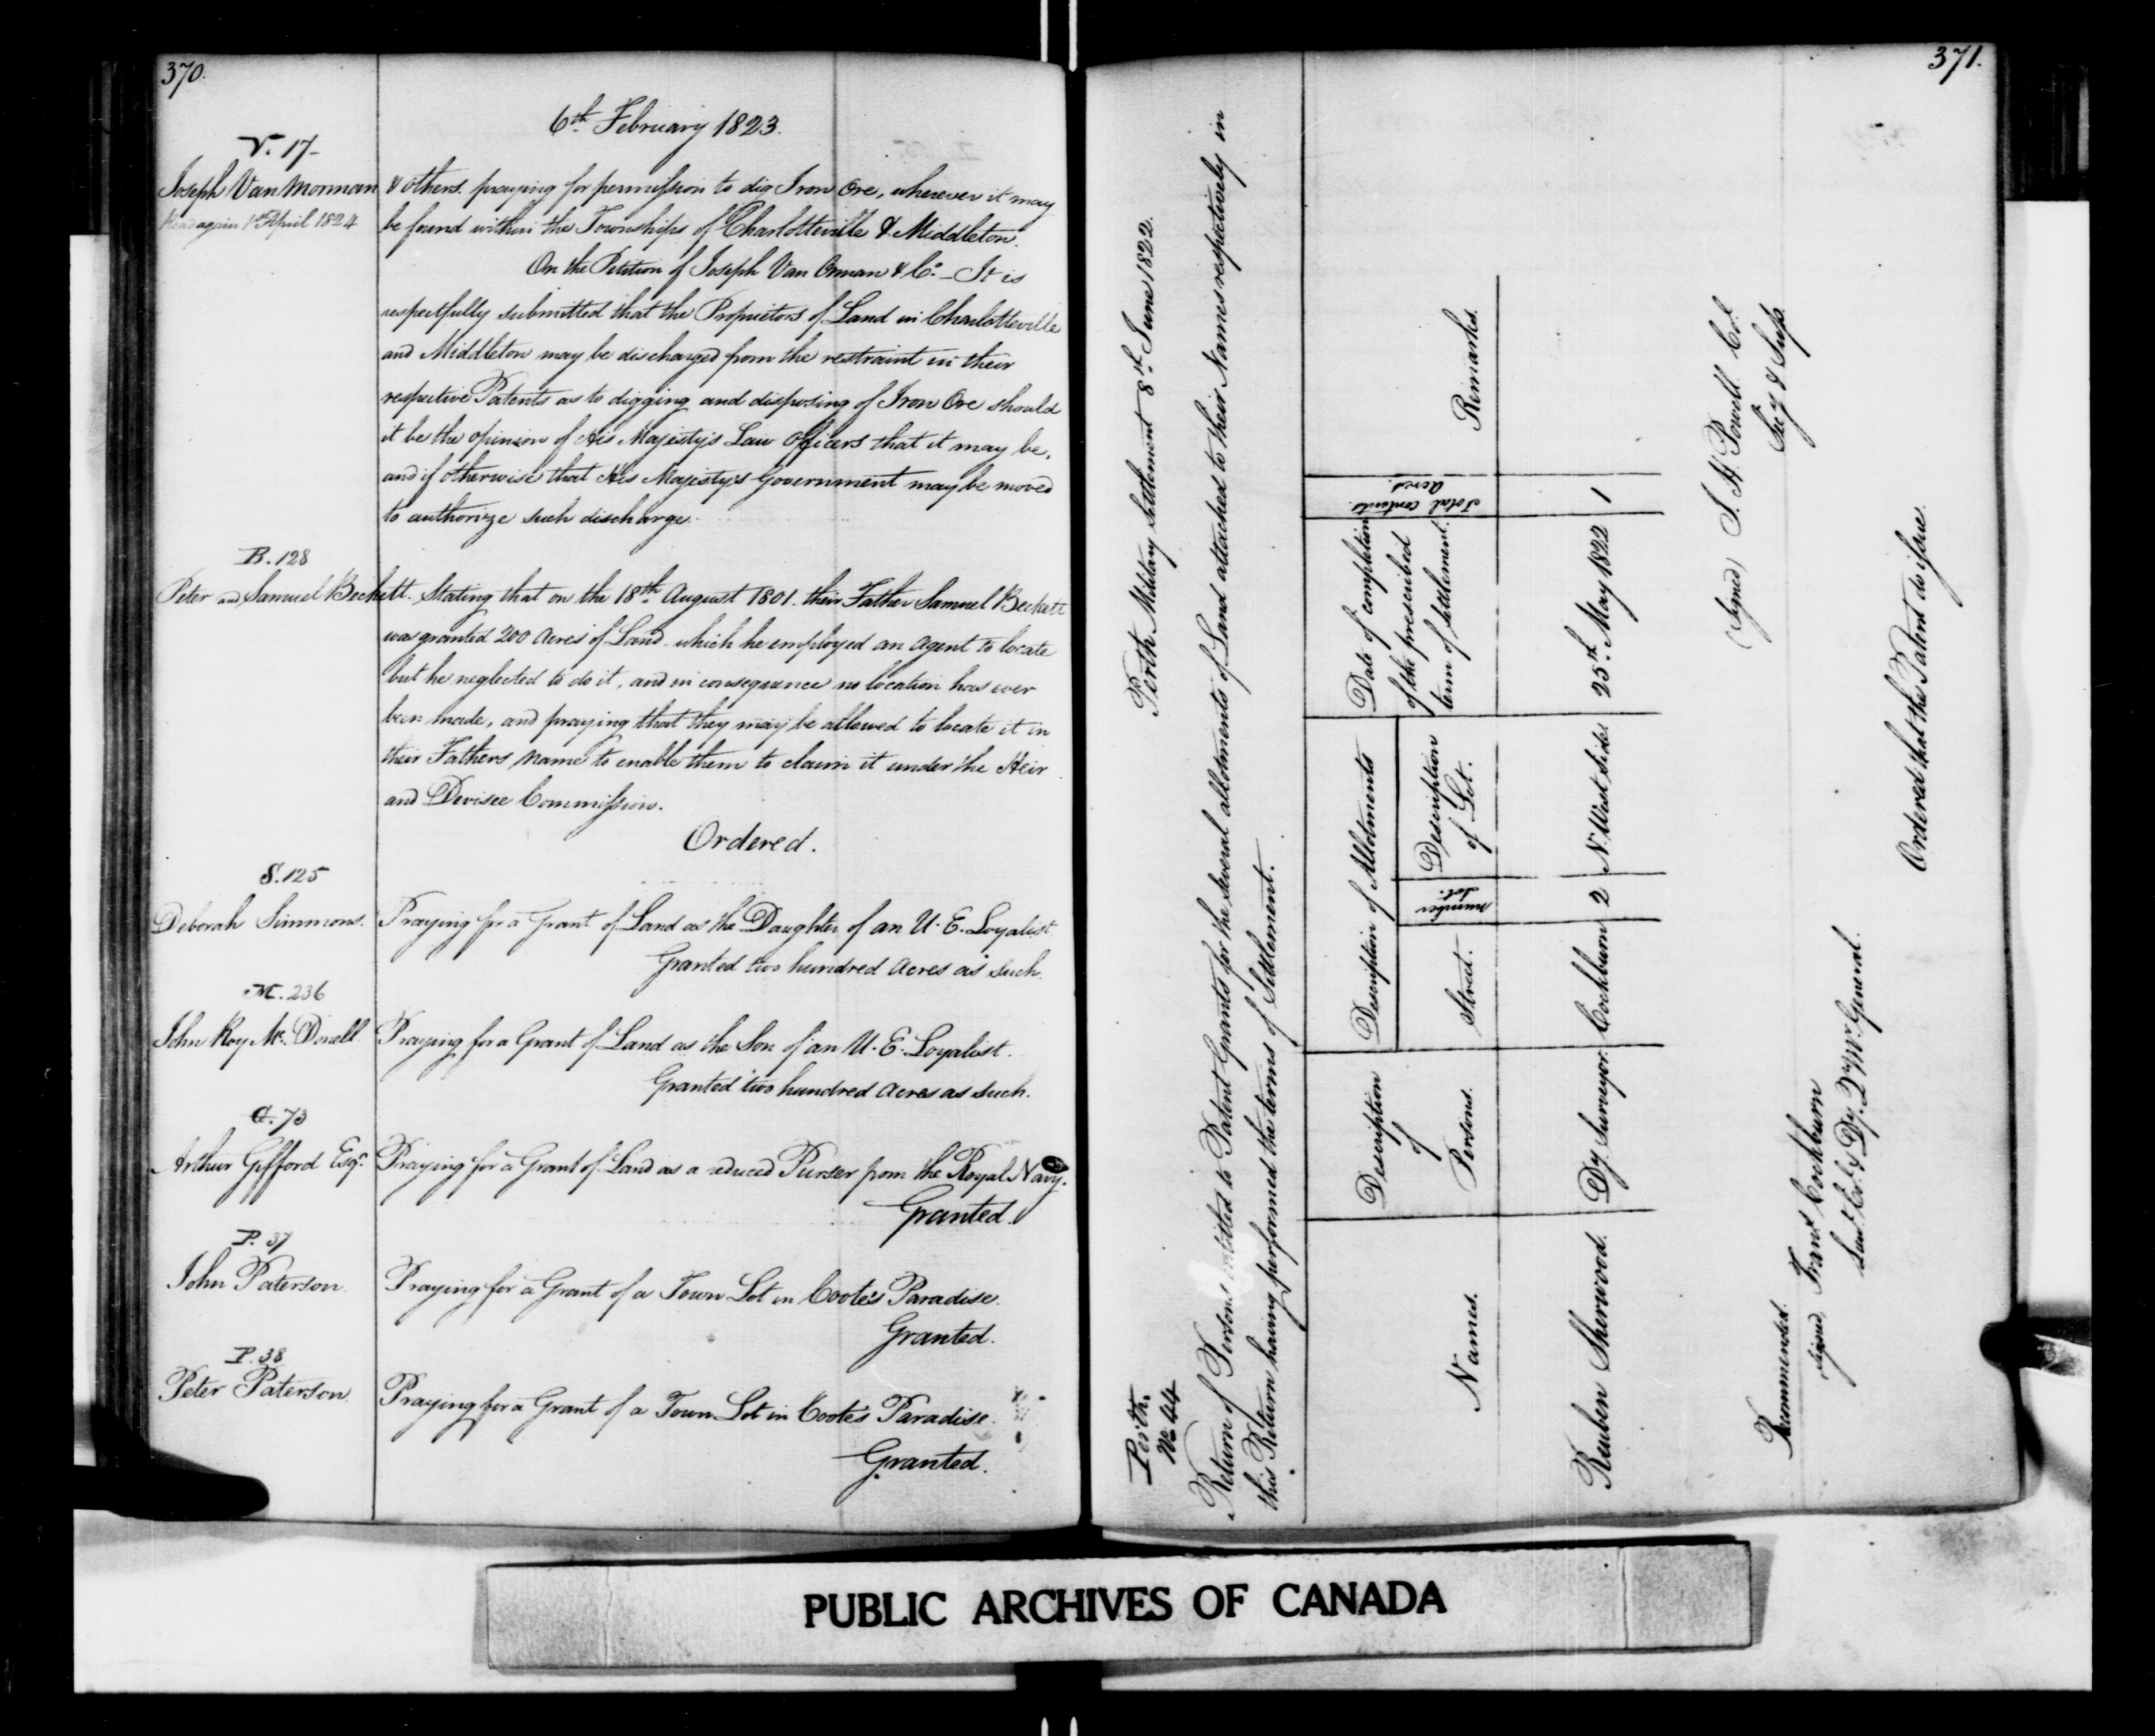 370.
6th February 1823.
V. 17-
Joseph Van Monman & others. praying for permission to dig Iron Ore, wherever it may
Read again 1st April 1824
be found within the Townships of Charlotteville & Middleton.
On the Petition of Joseph Van Orman & Co. - It is
respectfully submitted that the Proprietors of Land in Charlotteville
and Middleton may be discharged from the restraint in their
respective Patents as to digging and disposing of Iron Ore should
it be the opinion of His Majesty's Law Officers that it may be,
and if otherwise that His Majesty's Government may be moved
to authorize such discharge.
B. 128
Peter and Samuel Beckett. Stating that on the 18th August 1801. their Father Samuel Beckett
was granted 200 Acres of Land which he employed an Agent to locate
but he neglected to do it, and in consequence no location has ever
been made, and praying that they may be allowed to locate it in
their Fathers Name to enable them to claim it under the Heir
and Devisee Commission.
Ordered.
S. 125
Deborah Simmons. Praying for a Grant of Land as the Daughter of an U. E. Loyalist
Granted two hundred Acres as such.
M. 236
John Roy Mc. Donell. Praying for a Grant of Land as the Son of an U. E. Loyalist.
Granted two hundred Acres as such.
G. 73
Arthur Gifford Esqr. Praying for a Grant of Land as a reduced Purser from the Royal Navy.
Granted.
P. 37
John Paterson. Praying for a Grant of a Town Lot in Coote's Paradise.
Granted.
P. 38
Peter Paterson. Praying for a Grant of a Town Lot in Coote's Paradise.
Granted.
371.
Perth.
No 44
Perth Military Settlement 8th June 1822.
Return of Persons entitled to Patent Grants for the several allotments of Land attached to their Names respectively in
this Return having performed the terms of Settlement.
Names.
Description
of
Persons.
Description of Allotments
Street.
number
Lot.
Description
of Lot.
Date of completion
of the prescribed
term of settlement.
Total contents
Acres.
Remarks.
Reuben Sherwood. Dy. Surveyor. Cockburn 2 N. West Side. 25th May 1822 1
(Signed) J. H. Powell Col.
Secy & Supt.
Recommended.
Signed, Frans Cockburn
Lieut. Col. & Dy. Qr. Mr. General.
Ordered that the Patent do issue.
PUBLIC ARCHIVES OF CANADA